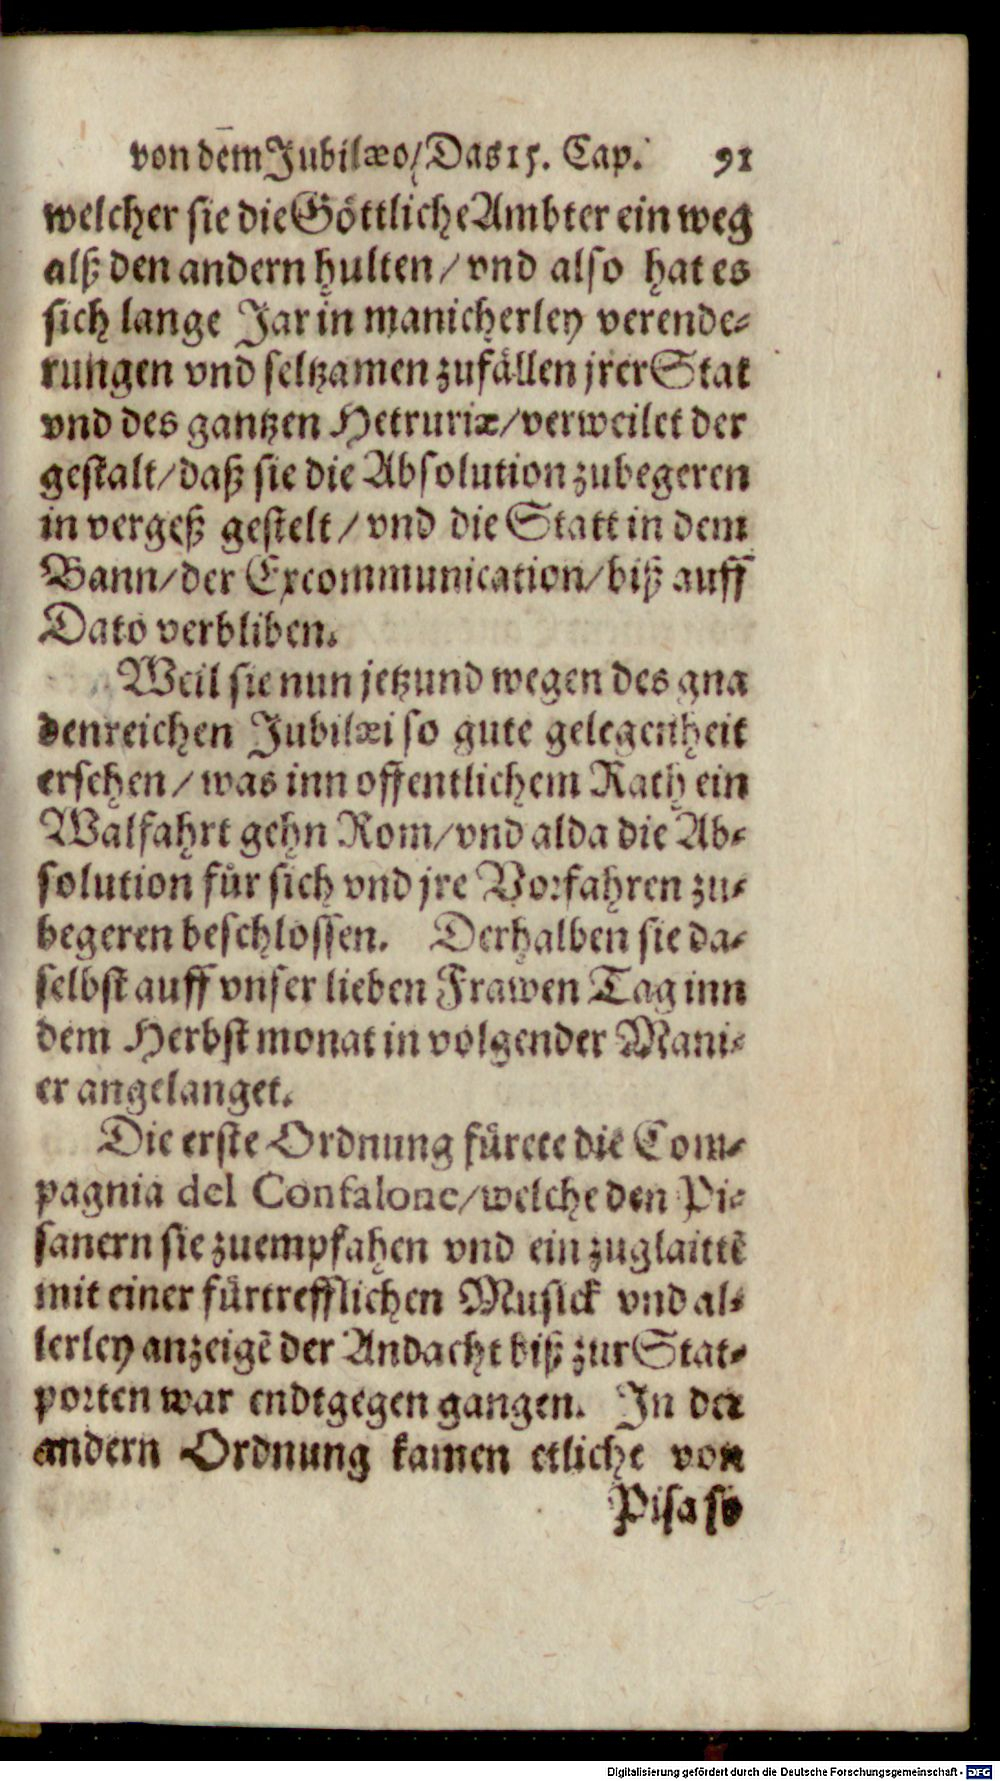 von dem̄ Jubilæo/ Das 15. Cap. 91
welcher sie die Göttliche Ambter ein weg
alß den andern hulten / vnd also hat es
sich lange Jar in manicherley verende-
rungen vnd seltzamen zufällen jrer Stat
vnd des gantzen Hetruriæ/ verweilet der
gestalt/ daß sie die Absolution zubegeren
in vergeß gestelt / vnd die Statt in dem
Bann/ der Excommunication/ biß auff
Dato verbliben.
Weil sie nun jetzund wegen des gna
denreichen Jubilæi so gute gelegenheit
ersehen / was inn offentlichem Rath ein
Walfahrt gehn Rom/ vnd alda die Ab-
solution für sich vnd jre Vorfahren zu-
begeren beschlossen. Derhalben sie da-
selbst auff vnser lieben Frawen Tag inn
dem Herbstmonat in volgender Mani-
er angelanget.
Die erste Ordnung fürete die Com-
pagnia del Confalone/ welche den Pi-
sanern sie zuempfahen vnd ein zuglaittē
mit einer fürtrefflichen Musick vnd al-
lerley anzeigē der Andacht biß zur Stat-
porten war endtgegen gangen. In der
andern Ordnung kamen etliche von
Pisa so
Digitalisierung gefördert durch die Deutsche Forschungsgemeinschaft - DFG